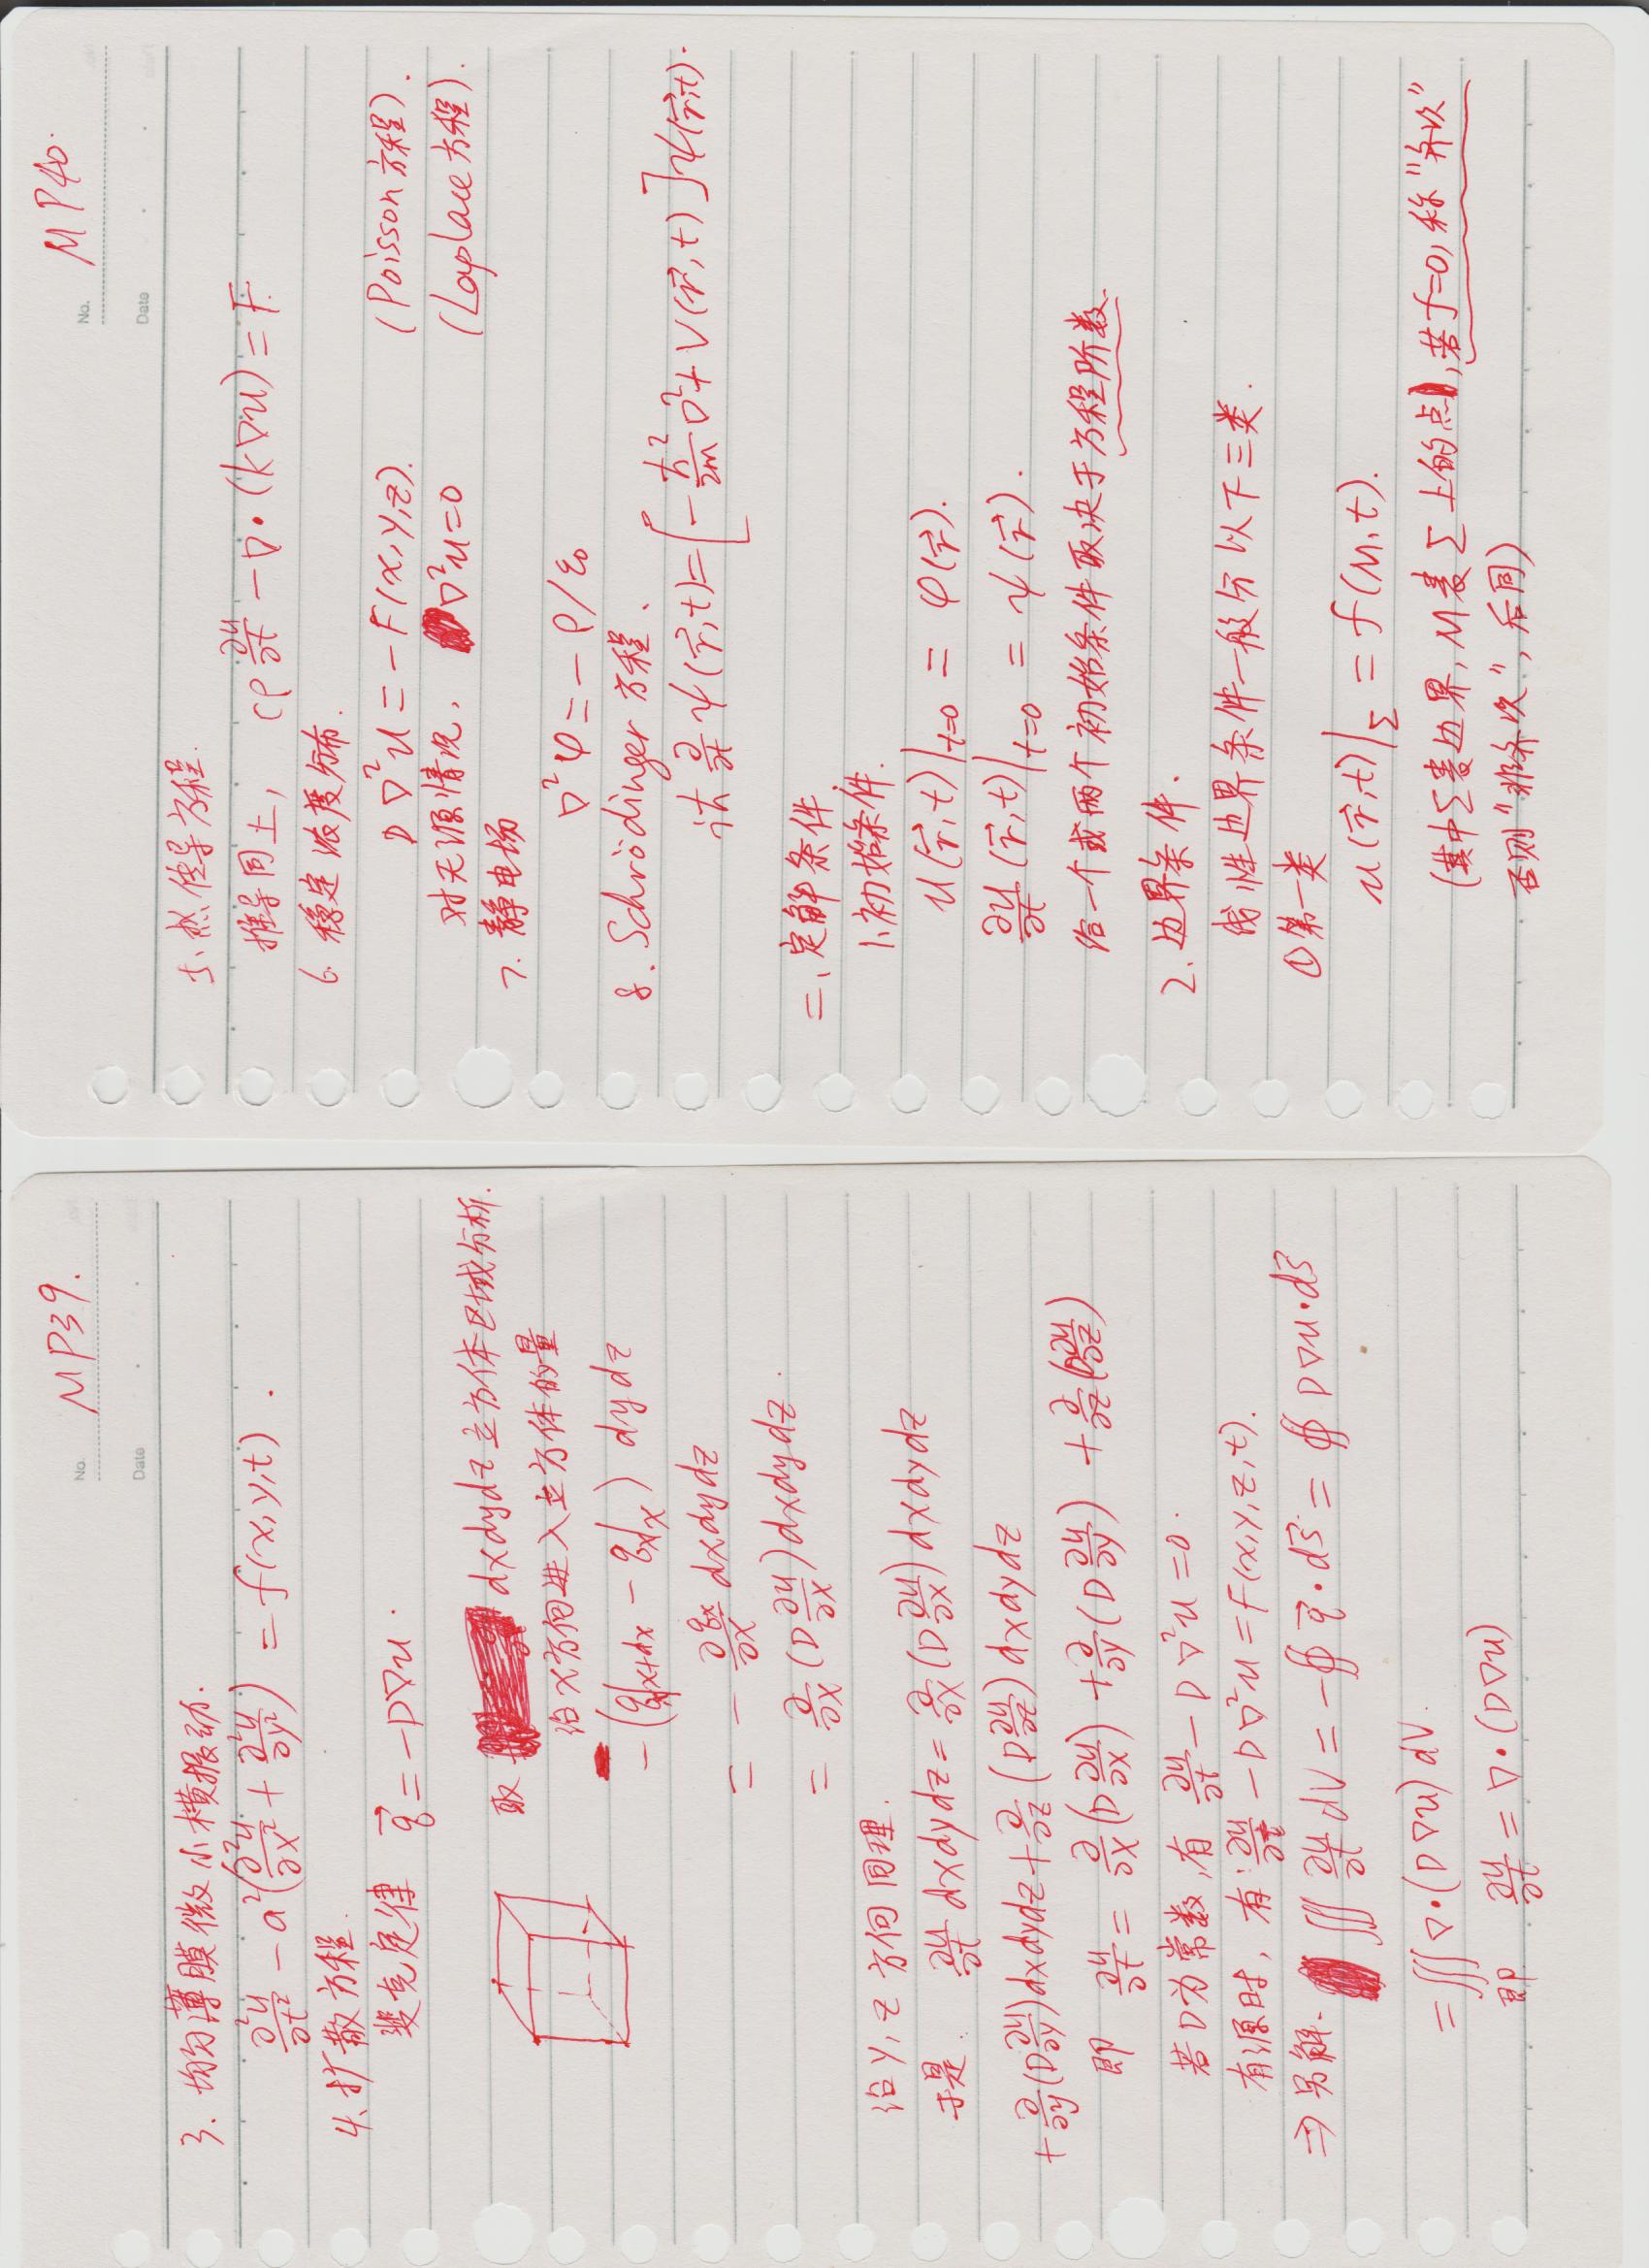 No. MP39.
Date
3. 均匀薄膜微小横振动.
∂²u/∂t² − a²(∂²u/∂x² + ∂²u/∂y²) = f(x,y,t).
4、扩散方程.
斐克定律 q⃗ = −D∇u.
取 dxdydz立方体区域分析.
沿x方向进入立方体的量
−(qₓ|x+dx − qₓ|x) dydz
= −∂qₓ/∂x dxdydz
= ∂/∂x (D ∂u/∂x) dxdydz.
沿y,z方向同理.
于是: ∂u/∂t dxdydz = ∂/∂x (D ∂u/∂x) dxdydz
+ ∂/∂y (D ∂u/∂y) dxdydz + ∂/∂z (D ∂u/∂z) dxdydz
即 ∂u/∂t = ∂/∂x (D ∂u/∂x) + ∂/∂y (D ∂u/∂y) + ∂/∂z (D ∂u/∂z)
若D为常数,有 ∂u/∂t − D∇²u = 0.
有源时, 有: ∂u/∂t − D∇²u = F(x,y,z,t).
⇒ 另解. ∭ ∂u/∂t dV = −∯ q⃗·ds⃗ = ∯ D∇u·ds⃗
= ∭ ∇·(D∇u) dV.
即 ∂u/∂t = ∇·(D∇u)
No. MP40.
Date
5、热传导方程.
推导同上, cρ ∂u/∂t − ∇·(k∇u) = F.
6. 稳定浓度分布.
D∇²u = −F(x,y,z). (Poisson方程).
对无源情况, ∇²u=0 (Laplace方程).
7. 静电场
∇²φ = −ρ/ε₀
8. Schrödinger 方程.
iħ ∂/∂t ψ(r⃗,t) = [−ħ²/2m ∇² + V(r⃗,t)]ψ(r⃗,t).
二、定解条件.
1、初始条件.
u(r⃗,t)|t=0 = φ(r⃗).
∂u/∂t (r⃗,t)|t=0 = ψ(r⃗).
给一个或两个初始条件取决于方程阶数.
2、边界条件.
线性边界条件一般分以下三类.
①第一类
u(r⃗,t)|Σ = f(M,t).
(其中Σ表边界, M表Σ上的点, 若f=0, 称"齐次"
否则"非齐次", 后同)